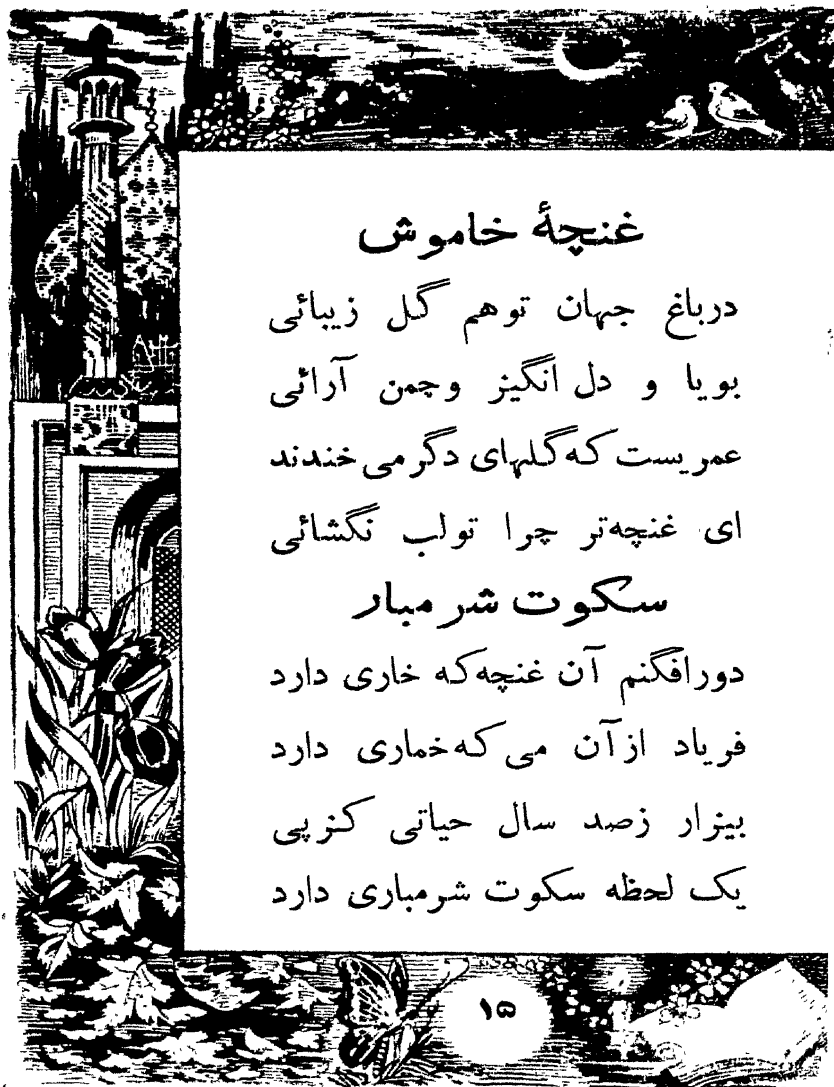 غنچهٔ خاموش
درباغ جهان توهم گل زیبائی
بویا و دل انگیز وچمن آرائی
عمریست که گلهای دگر می خندند
ای غنچه‌تر چرا تولب نگشائی
سکوت شرمبار
دورافگنم آن غنچه که خاری دارد
فریاد ازآن می که خماری دارد
بیزار زصد سال حیاتی کزپی
یک لحظه سکوت شرمباری دارد
۱۵